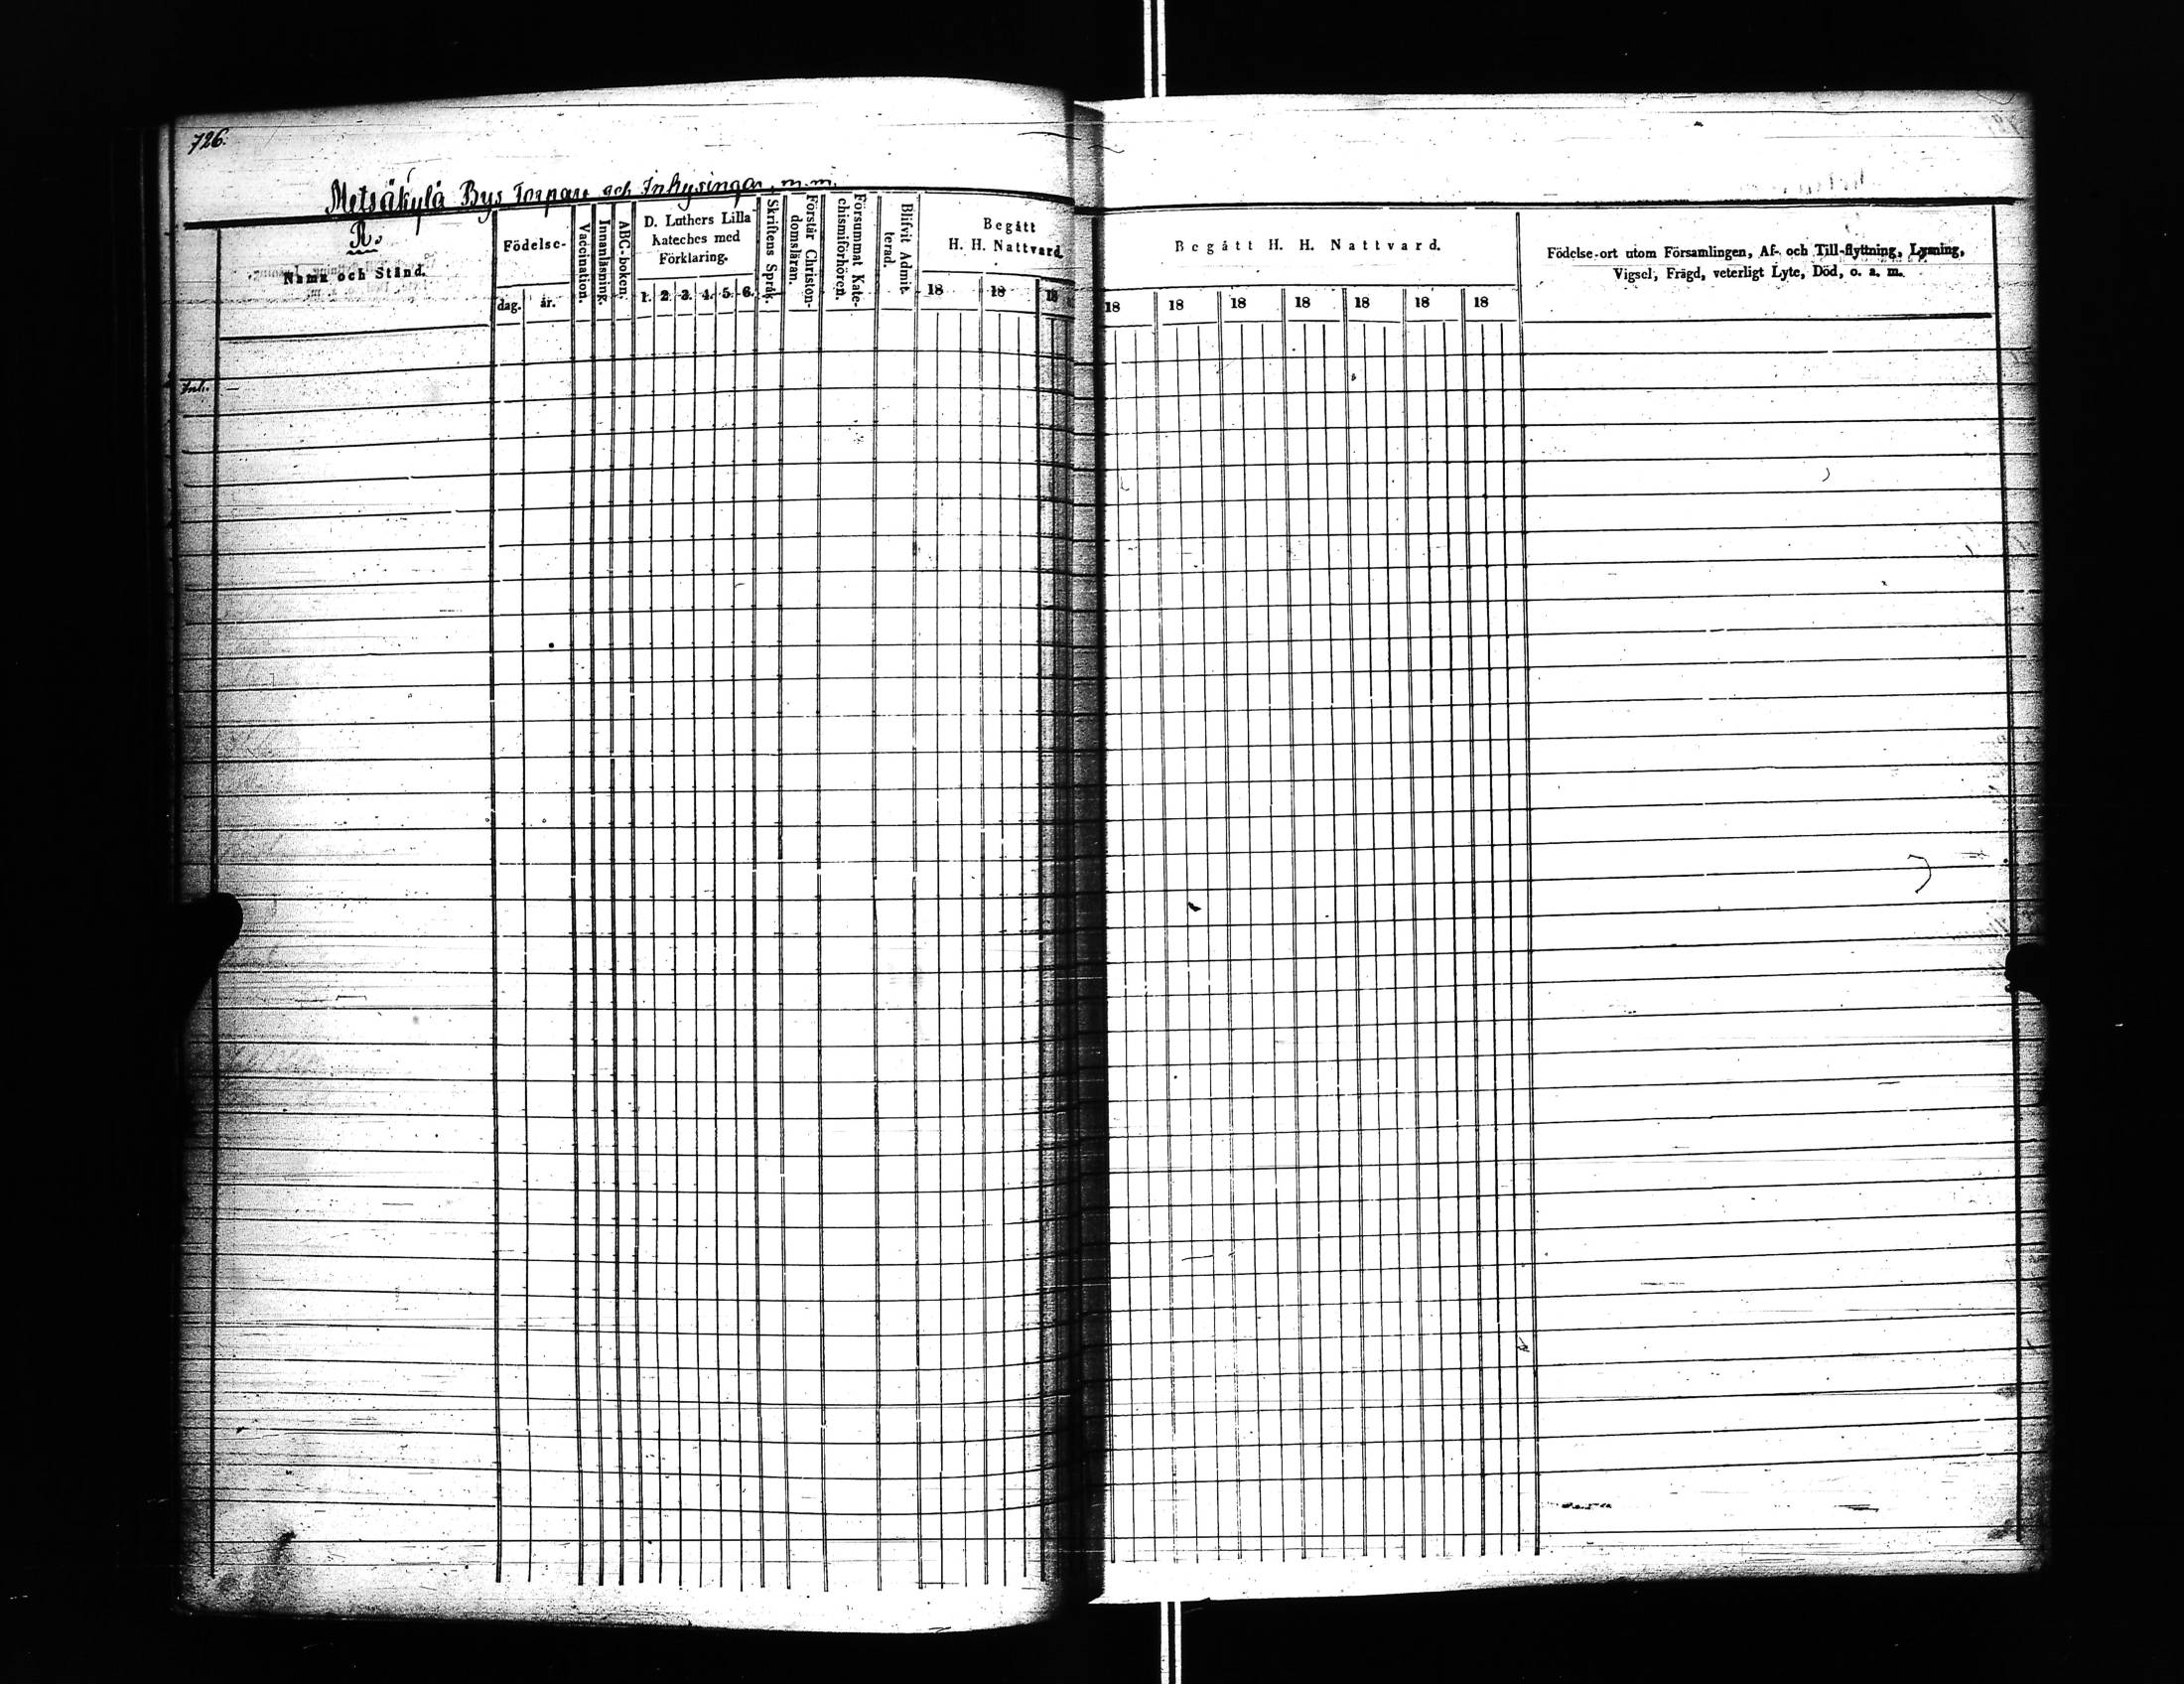 726.
Metsäkylä Bys Torpare och Inhysingar, m.m.
R.
Namn och Stånd.
Födelse-
dag.
år.
Vaccination.
Innanläsning.
ABC-boken.
D. Luthers Lilla
Kateches med
Förklaring.
1. 2. 3. 4. 5. 6.
Skriftens Språk.
Förstår Christen-
domsläran.
Försummat Kate-
chismiförhören.
Blifvit Admit-
terad.
Begått
H. H. Nattvard.
18 18 18
Inh.
Begått H. H. Nattvard.
18 18 18 18 18 18 18
Födelse-ort utom Församlingen, Af- och Till-flyttning, Lysning,
Vigsel, Frägd, veterligt Lyte, Död, o. a. m.